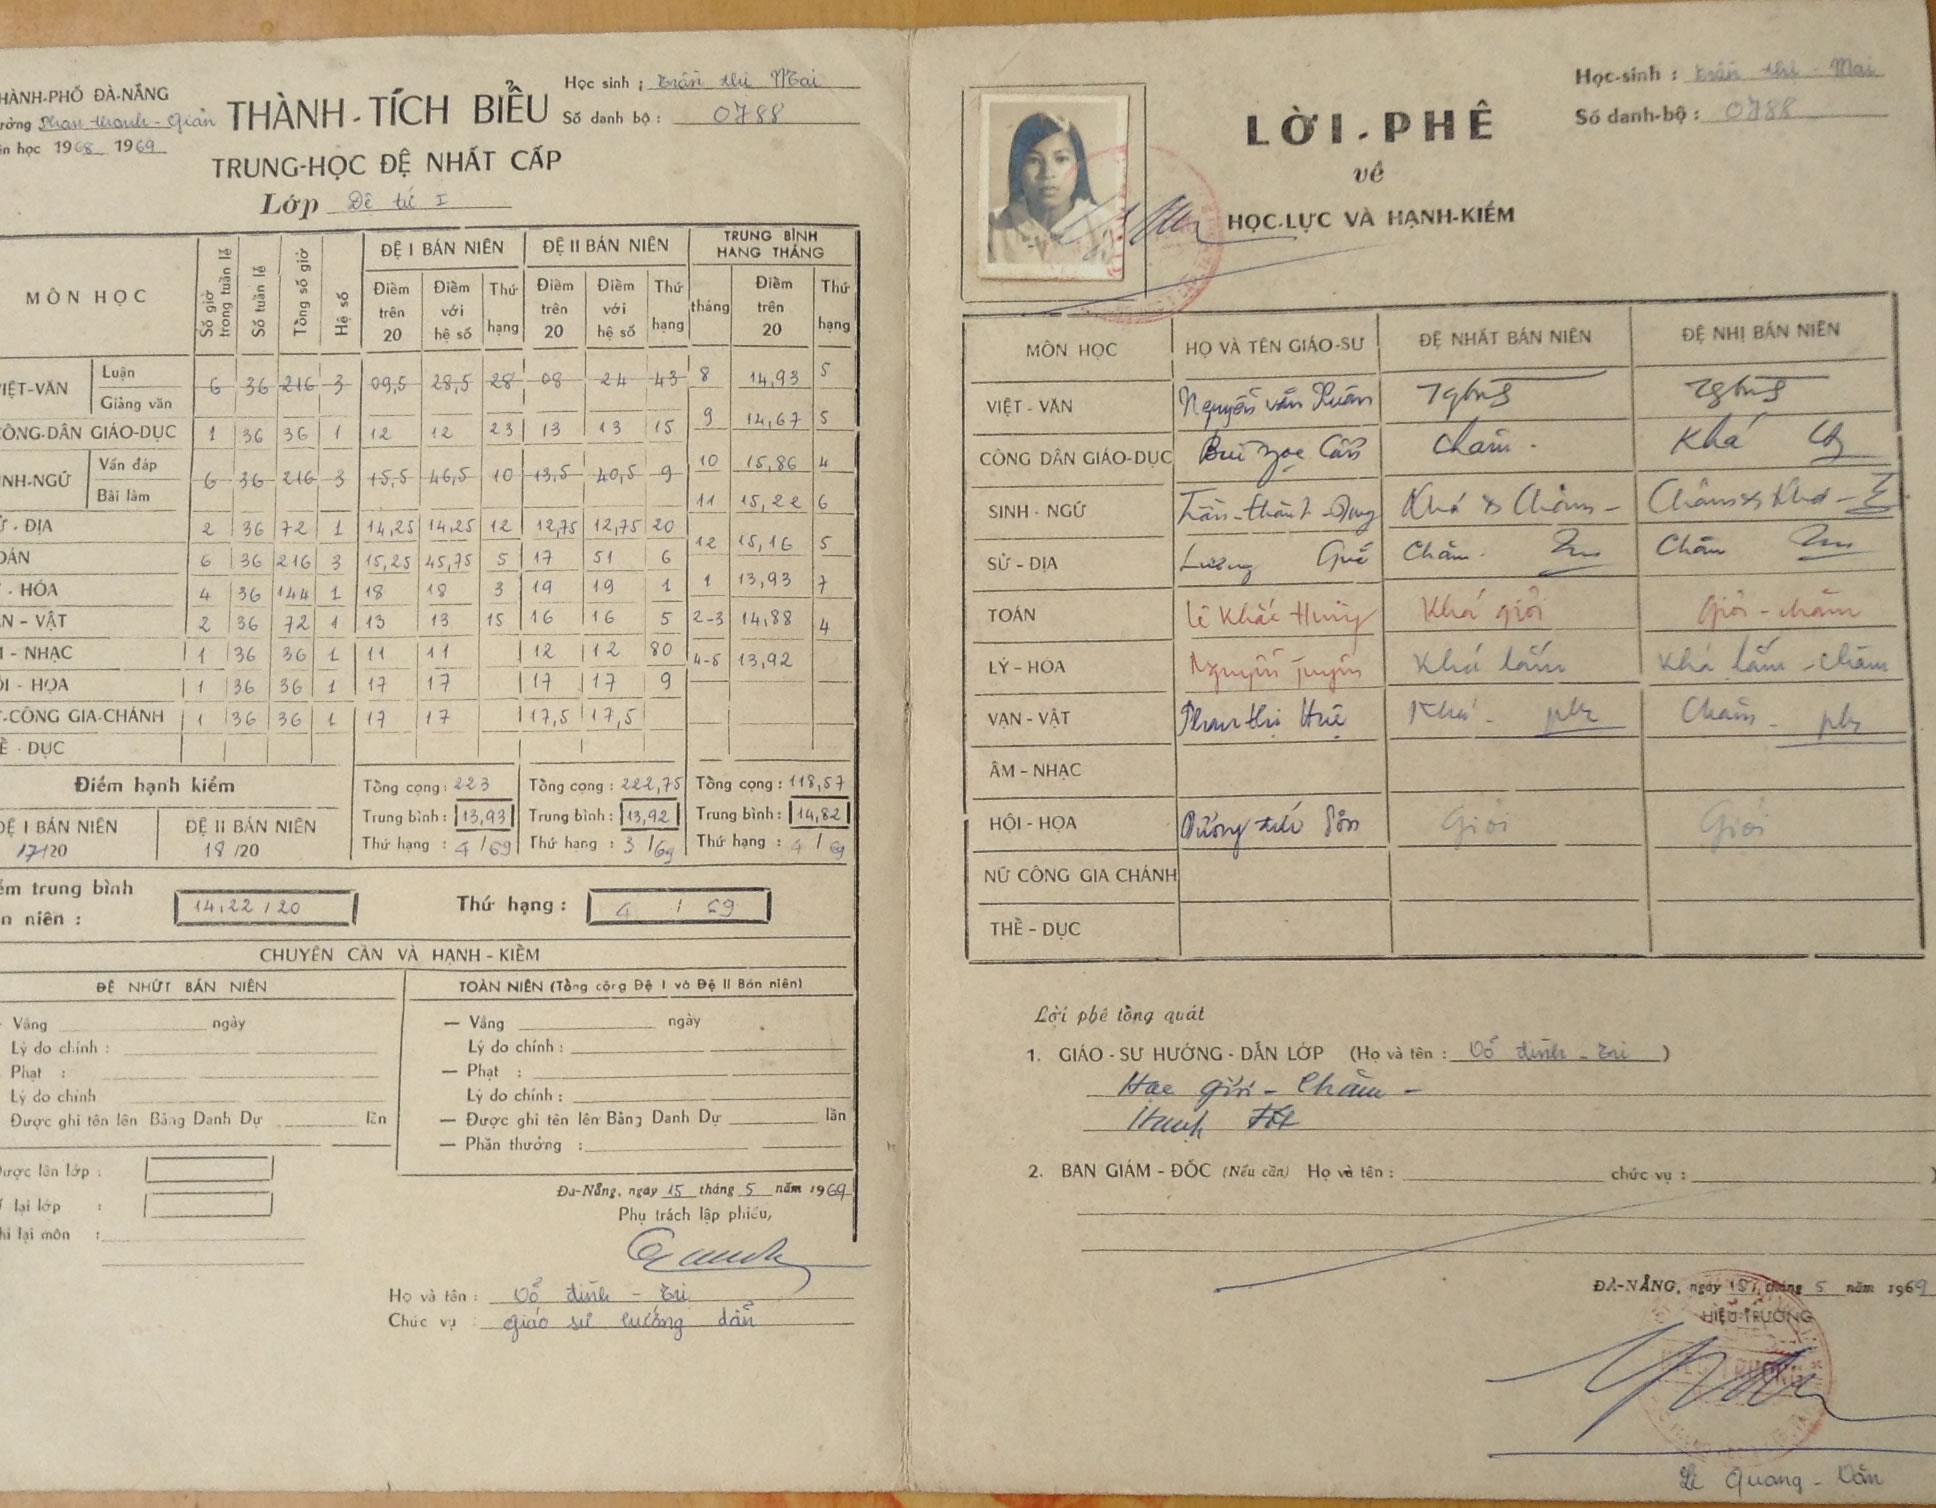 HÀNH-PHỐ ĐÀ-NẴNG
ường Phan-thanh-Giản
ên học 1968 1969
THÀNH-TÍCH BIỂU
TRUNG-HỌC ĐỆ NHẤT CẤP
Lớp Đệ tứ I
Học sinh : Trần thị Mai
Số danh bộ : 0788
MÔN HỌC | Số giờ trong tuần lễ | Số tuần lễ | Tổng số giờ | Hệ số | ĐỆ I BÁN NIÊN | ĐỆ II BÁN NIÊN | TRUNG BÌNH HANG THÁNG
Điểm trên 20 | Điểm với hệ số | Thứ hạng | Điểm trên 20 | Điểm với hệ số | Thứ hạng | tháng | Điểm trên 20 | Thứ hạng
IỆT-VĂN Luận Giảng văn 6 36 216 3 09,5 28,5 28 08 24 43 8 14,93 5
ÔNG-DÂN GIÁO-DỤC 1 36 36 1 12 12 23 13 13 15 9 14,67 5
INH-NGỮ Vấn đáp Bài làm 6 36 216 3 15,5 46,5 10 13,5 40,5 9 10 15,86 4
11 15,22 6
Ử - ĐỊA 2 36 72 1 14,25 14,25 12 12,75 12,75 20
OÁN 6 36 216 3 15,25 45,75 5 17 51 6 12 15,16 5
- HÓA 4 36 144 1 18 18 3 19 19 1 1 13,93 7
N - VẬT 2 36 72 1 13 13 15 16 16 5 2-3 14,88 4
M - NHẠC 1 36 36 1 11 11 12 12 80 4-5 13,92
ỘI - HỌA 1 36 36 1 17 17 17 17 9
-CÔNG GIA-CHÁNH 1 36 36 1 17 17 17,5 17,5
Ể - DỤC
Điểm hạnh kiểm
Tổng cọng : 223 Tổng cọng : 222,75 Tổng cọng : 118,57
ĐỆ I BÁN NIÊN ĐỆ II BÁN NIÊN Trung bình : 13,93 Trung bình : 13,92 Trung bình : 14,82
17/20 18/20 Thứ hạng : 4/69 Thứ hạng : 3/69 Thứ hạng : 4/69
ểm trung bình
n niên : 14,22/20 Thứ hạng : 4 / 69
CHUYÊN CẦN VÀ HẠNH - KIỂM
ĐỆ NHỨT BÁN NIÊN TOÀN NIÊN (Tổng cộng Đệ I và Đệ II Bán niên)
- Vắng ngày — Vắng ngày
Lý do chính : Lý do chính :
Phạt : — Phạt :
Lý do chính Lý do chính :
Được ghi tên lên Bảng Danh Dự lần — Được ghi tên lên Bảng Danh Dự lần
— Phần thưởng :
Được lên lớp :
lại lớp :
hi lại môn :
Đà-Nẵng, ngày 15 tháng 5 năm 1969
Phụ trách lập phiếu,
Họ và tên : Võ đình - Tri
Chức vụ : giáo sư hướng dẫn
LỜI-PHÊ
về
HỌC-LỰC VÀ HẠNH-KIỂM
Học-sinh : Trần thị - Mai
Số danh-bộ : 0788
MÔN HỌC | HỌ VÀ TÊN GIÁO-SƯ | ĐỆ NHẤT BÁN NIÊN | ĐỆ NHỊ BÁN NIÊN
VIỆT - VĂN Nguyễn văn Xuân
CÔNG DÂN GIÁO-DỤC Bùi ngọc Chăm . Khá
SINH - NGỮ Trần-thành- Khá & Chăm - Chăm & Khá -
SỬ - ĐỊA Lương Quế Chăm. Chăm
TOÁN Lê Khắc Hưng Khá giỏi Giỏi - chăm
LÝ - HÓA Nguyễn Tuyến Khá lắm Khá lắm - chăm
VẠN - VẬT Phan thị Huệ Khá - Chăm -
ÂM - NHẠC
HỘI - HỌA Giỏi Giỏi
NỮ CÔNG GIA CHÁNH
THỂ - DỤC
Lời phê tổng quát
1. GIÁO - SƯ HƯỚNG - DẪN LỚP (Họ và tên : Võ đình - Tri )
Học giỏi - Chăm -
Hạnh tốt
2. BAN GIÁM - ĐỐC (Nếu cần) Họ và tên : chức vụ : )
ĐÀ-NẴNG, ngày 15 tháng 5 năm 1969
HIỆU-TRƯỞNG
Lê Quang - Văn